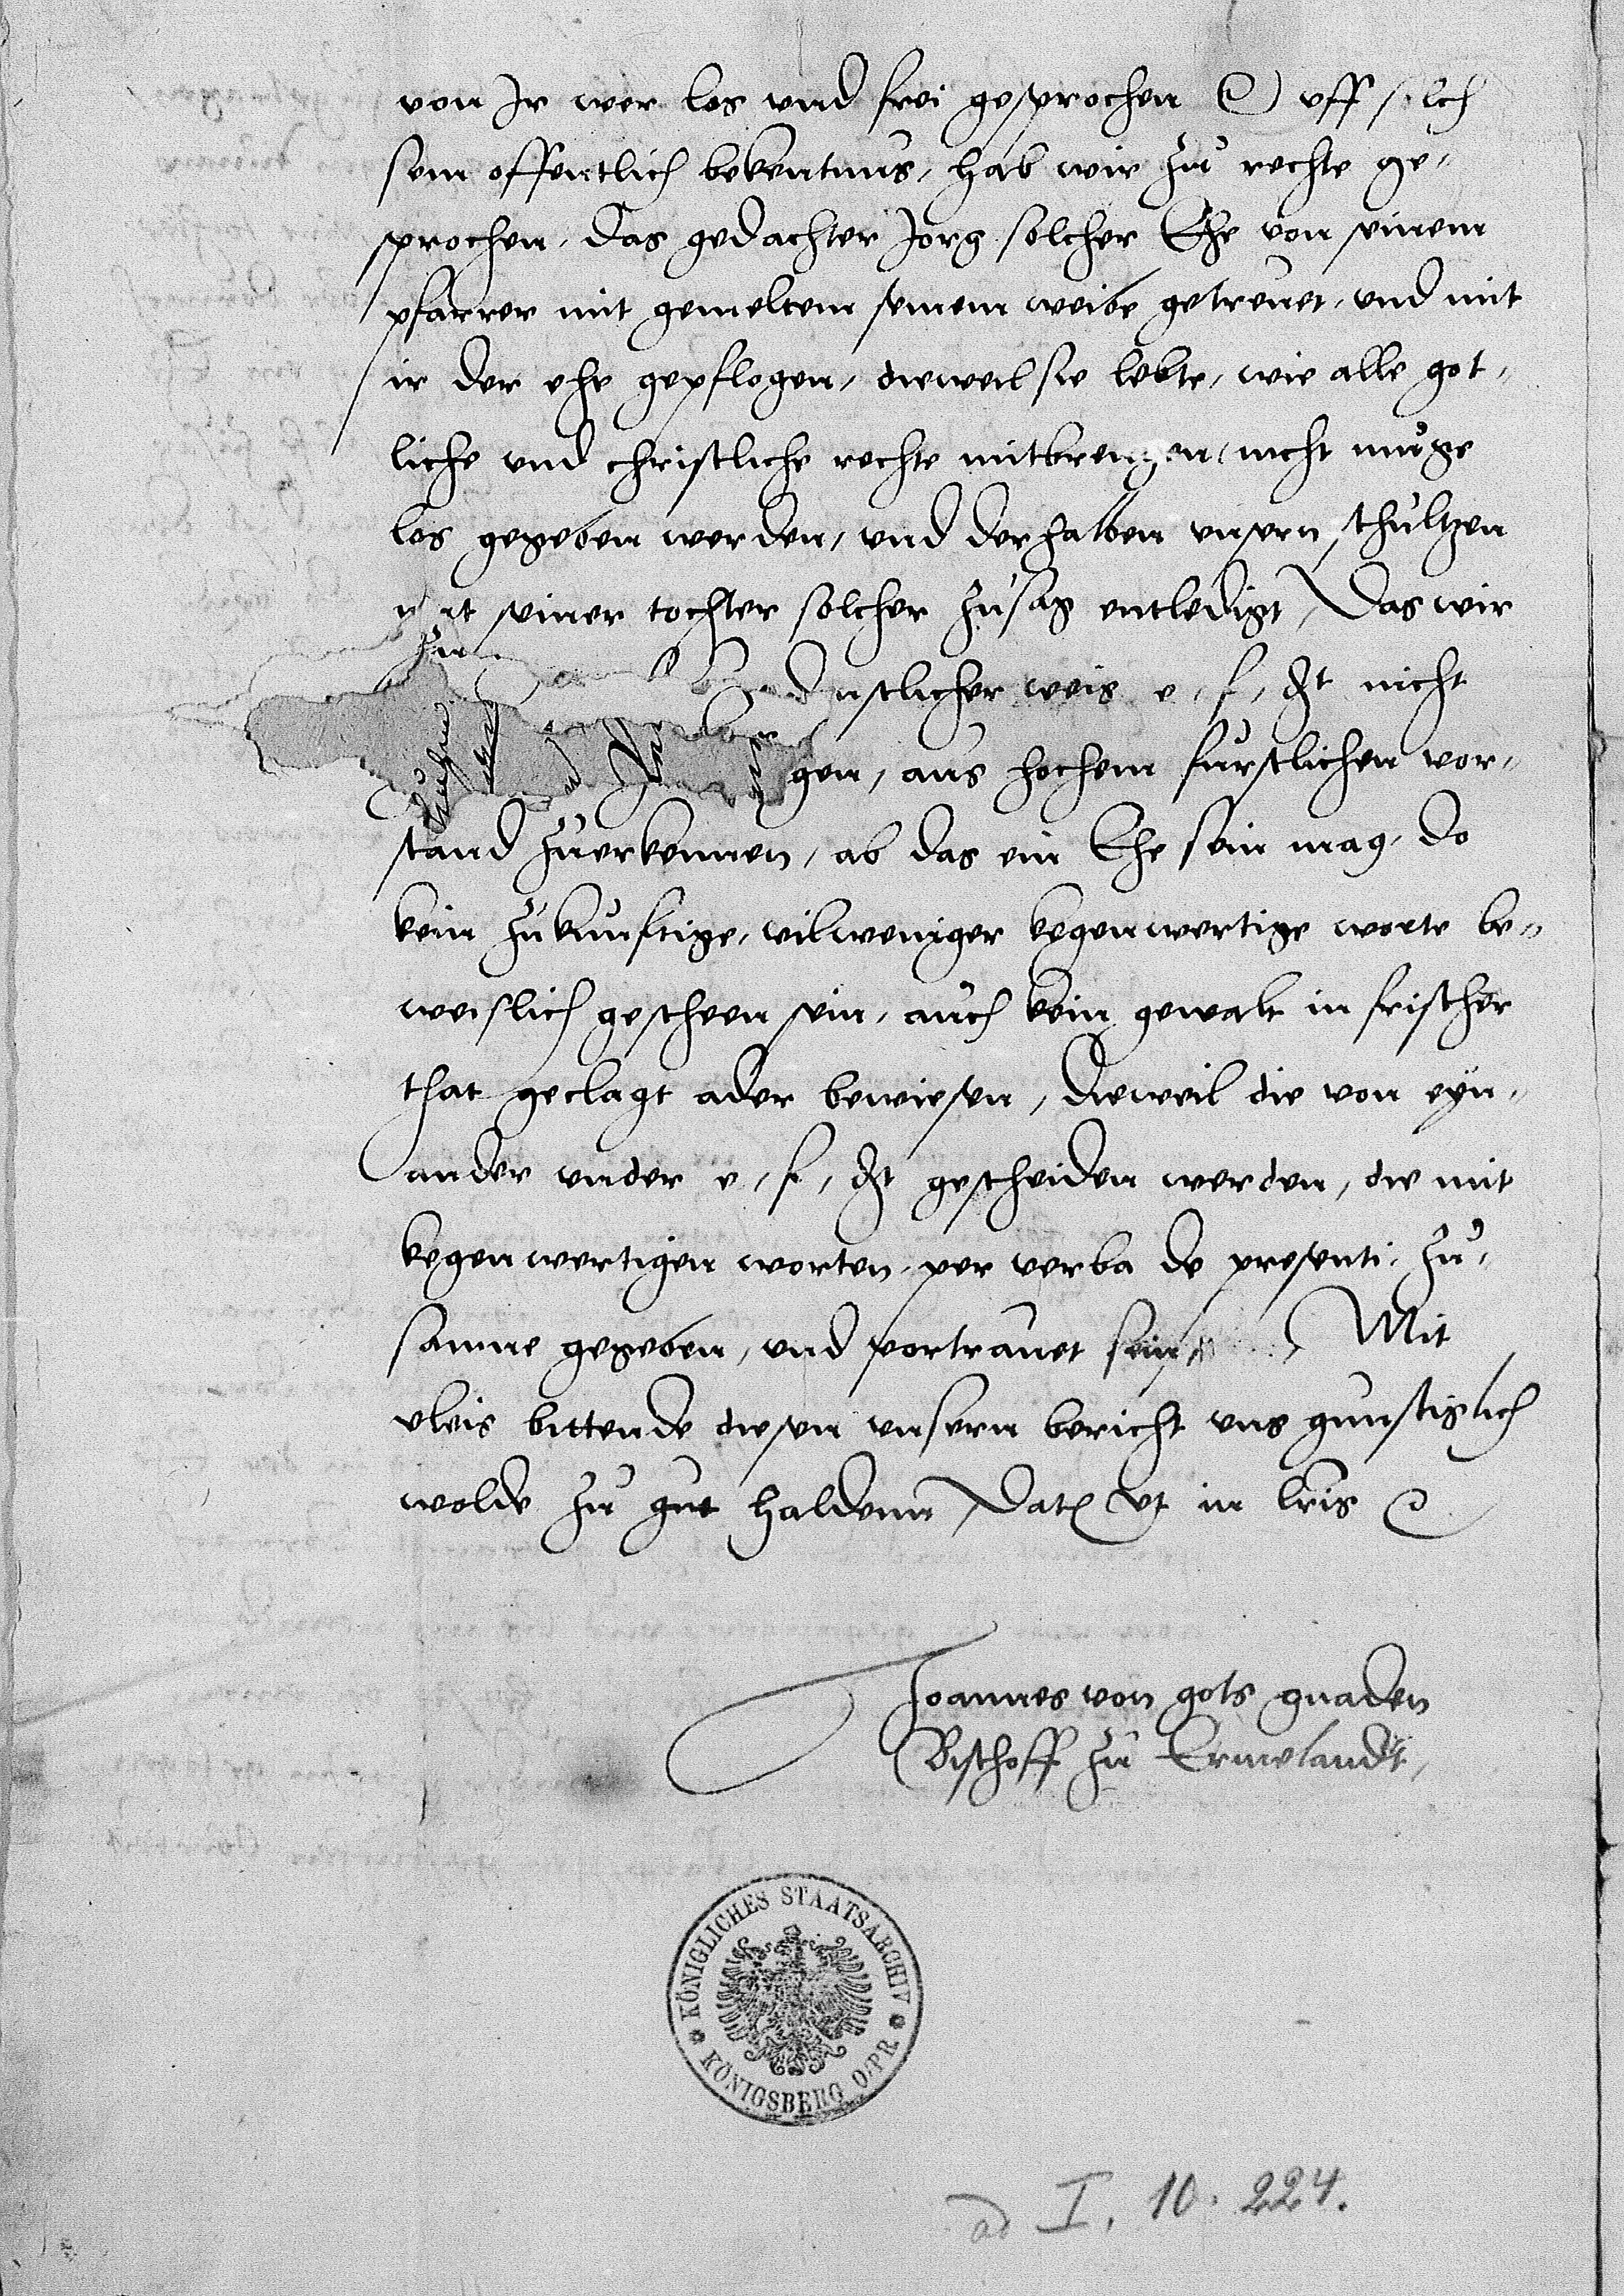 von Jr wer los und frei gesprochen etc uff solch
sein offentlich bekentnus, hab wir zu rechte ge-
sprochen, das gedachter Jorg solcher Ehe von seinem
pfarrer mit gemeltem seinem weibe getreuet, und mit
ir der ehe gepflogen, dieweil sie lebte, wie alle got-
liche und christliche rechte mitbrengen, nicht muge
los gegeben werden, und derhalben unsern schultzen
seiner tochter solcher zusag entledigt, Das wir
e, f, dt nicht
gen, aus hochem furstlichen vor-
stand zuerkennen, ab das ein Ehe sein mag, do
kein zukunftige, vilweniger kegenwertige worte be-
weislich gescheen sein, auch kein gewalt in frischer
that geclagt ader bewiesen, dieweil die von eyn-
ander under e, f, dt gescheiden werden, die mit
kegenwertigen worten, per verba de presenti, zu-
samne gegeben, und vortrauet sein, Mit
vleis bittende diesen unsern bericht uns gunstiglich
wolde zu gut haldenn, Dat ut in lris etc
Joannes von gots gnaden
Bischoff zu Ermelandt,
KÖNIGLICHES STAATSARCHIV
KÖNIGSBERG O/PR
ad I. 10. 224.